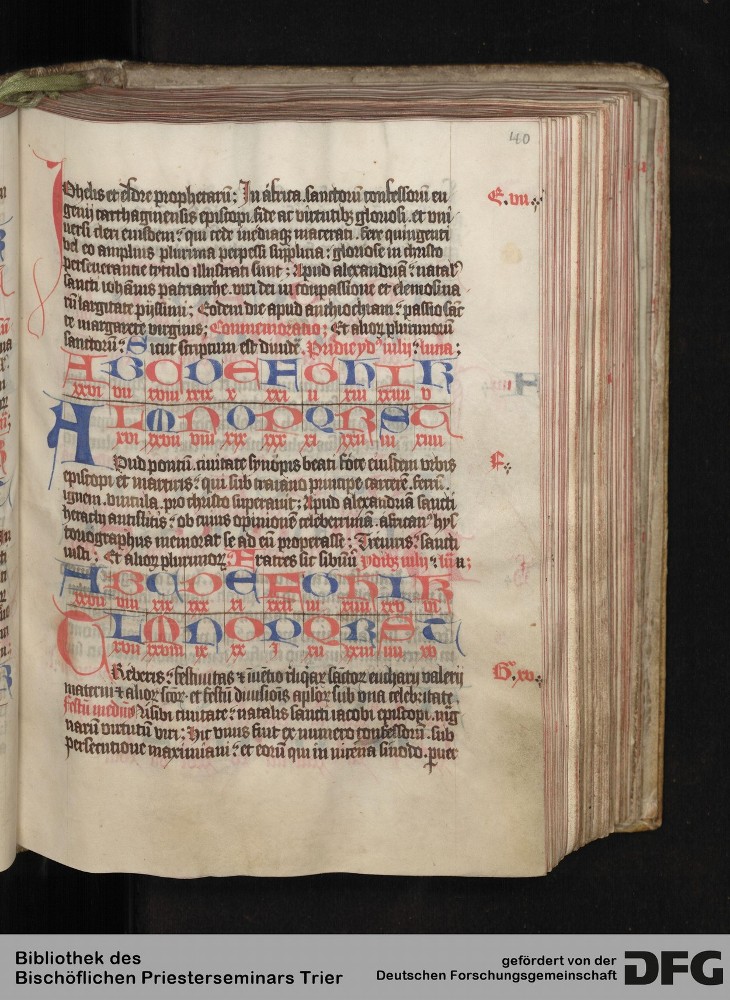 40
Johelis et esdre prophetarū; In africa. sanctorū confessorū eu
E. vii.
genij carthaginensis episcopi. fide ac virtutibꝫ gloriosi. et vni
uersi cleri eiusdem: qui cede inediaqꝫ macerati. fere quingenti
vel eo amplius plurima perpessi supplicia: gloriose in christo
perseuerantie tytulo illustrati sunt; Apud alexandriā: natał
sancti iohānis patriarche. viri dei in conpassione et elemosina
rū largitate pijssimi; Eodem die apud anthiochiam: passio sāc
te margarete virginis; Commemoratio; Et alioꝝ plurimorū
sanctorū: Sicut scriptum est dicente. Pridie ydꝰ iulij: luna;
A B C D E F G H I K
xxvi vii xviii xxix x xxi ii xiii xxiiii v
L M N O P Q R S T
xvi xxvii viii xix xxx xi xxii iii xiiii
Apud pontū. ciuitate synopis beati focte eiusdem vrbis
F.
episcopi et martiris: qui sub traiano principe carcerē. ferrū.
ignem. vincula. pro christo superauit; Apud alexandriā sancti
heracly antistitis: ob cuius opinionē celeberrimā. africanꝰ hys
toriographus memorat se ad eū properasse; Treueris: sancti
iusti; Et alioꝝ plurimoꝝ Fratres sit sibiūi ydibꝫ iulij: lūn;
A B C D E F G H I K
xxvii viii xix xxx xi xxii iii xiiii xxv vi
L M N O P Q R S T
xvii xxviii ix xx i xii xxiii iiii xv
Treberis: festiuitas ⁊ inūcio reliqaꝝ sāctorꝝ eucharij valerij
G. xv.
materni ⁊ alioꝝ scōꝝ. et festū diuisiōis apłoꝝ sub vna celebritate.
festū mediū Nisibi ciuitate: natalis sancti iacobi episcopi. mag
narū virtutū viri; Hic vnus fuit ex numero confessorū. sub
persecutione maximiani: et eorū qui in nicena sinodo. puer
Bibliothek des
Bischöflichen Priesterseminars Trier
gefördert von der
Deutschen Forschungsgemeinschaft
DFG